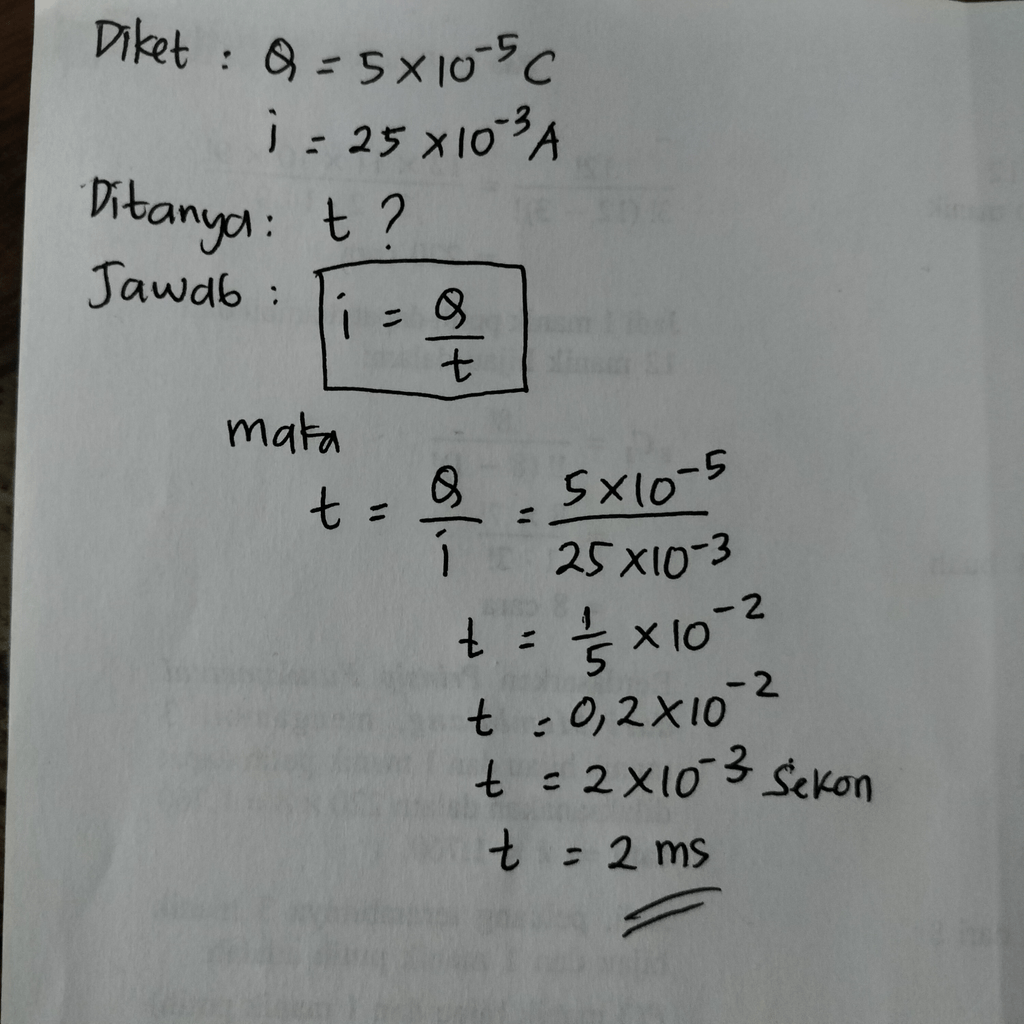 Diket : Q = 5 × 10⁻⁵ C
i = 25 × 10⁻³ A
Ditanya : t ?
Jawab : i = Q/t
maka
t = Q/i = 5×10⁻⁵/25×10⁻³
t = 1/5 × 10⁻²
t = 0,2 × 10⁻²
t = 2 × 10⁻³ Sekon
t = 2 ms